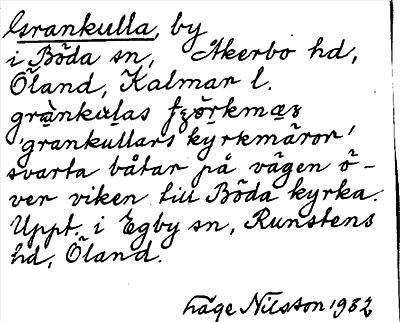 Grankulla, by
i Böda sn, Åkerbo hd,
Öland, Kalmar l.
'grankullars kyrkmäror'
svarta båtar på vägen ö-
ver viken till Böda kyrka.
Uppt. i Egby sn, Runstens
hd, Öland.
Tage Nilsson 1932